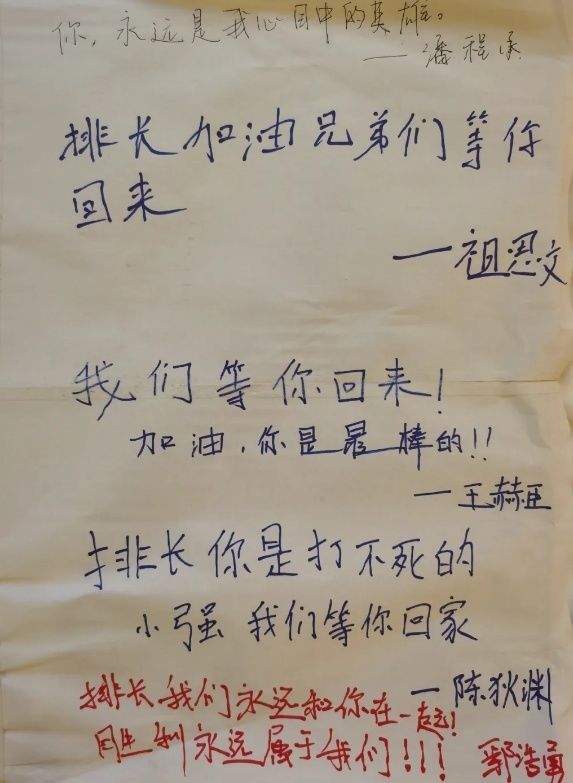 你，永远是我心目中的英雄。
——潘程承
排长加油兄弟们等你
回来
—祖恩文
我们等你回来！
加油，你是最棒的！！
—王赫臣
排长你是打不死的
小强 我们等你回家
—陈狄渊
排长我们永远和你在一起！
胜利永远属于我们！！！ 鄂浩勇